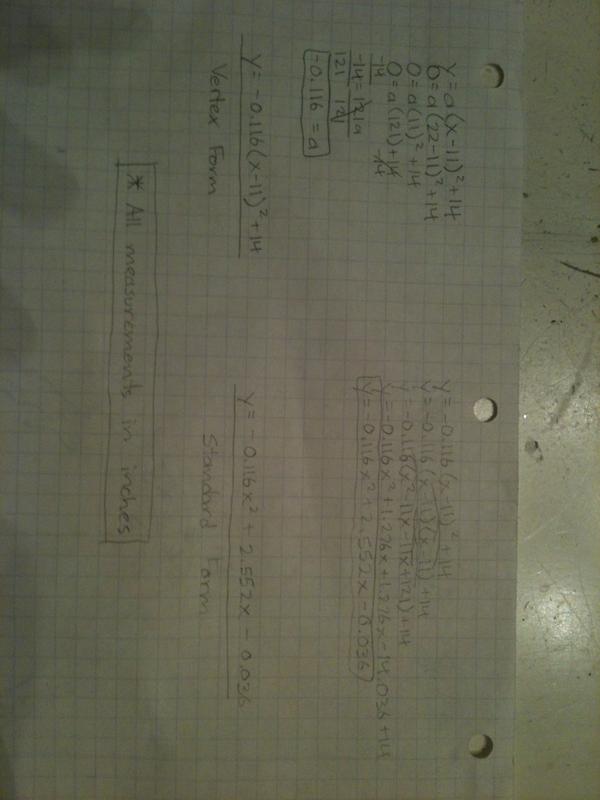 y = a(x-11)²+14
0 = a(22-11)²+14
0 = a(11)²+14
0 = a(121)+14
-14 -14
-14 = 121a
121 121
-0.116 = a
y = -0.116(x-11)²+14
Vertex Form
y = -0.116(x-11)²+14
y = -0.116(x-11)(x-11)+14
y = -0.116(x²-11x-11x+121)+14
y = -0.116x²+1.276x+1.276x-14.036+14
y = -0.116x²+2.552x-0.036
y = -0.116x² + 2.552x - 0.036
Standard Form
* All measurements in inches